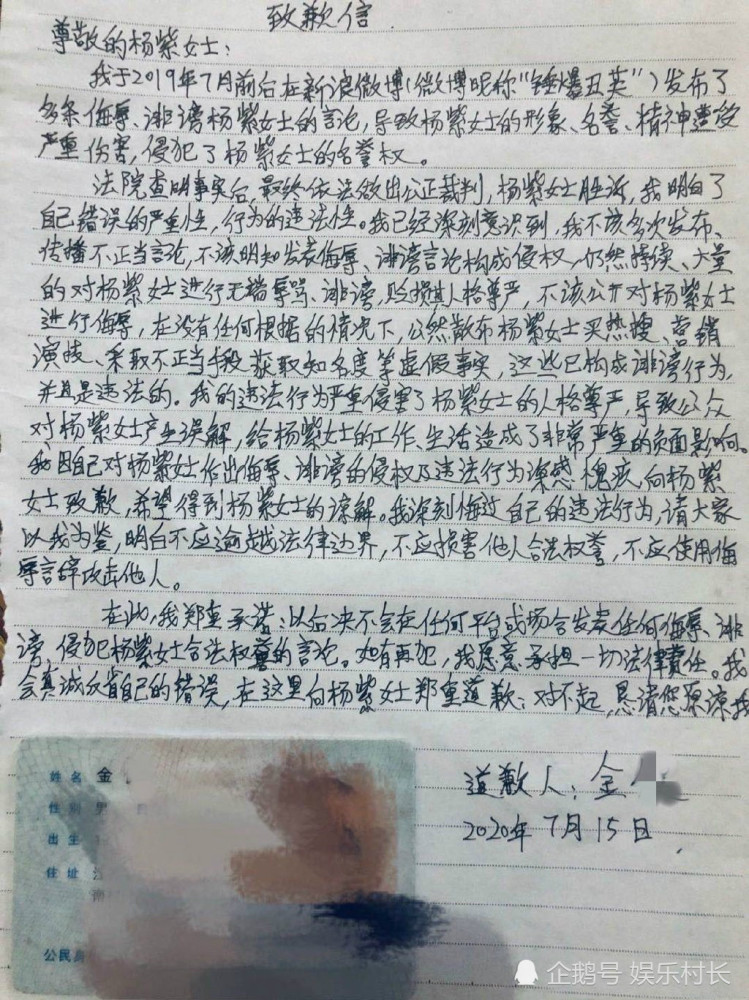 致歉信
尊敬的杨紫女士：
我于2019年7月前后在新浪微博(微博昵称"锤爆丑英")发布了
多条侮辱、诽谤杨紫女士的言论，导致杨紫女士的形象、名誉、精神遭致
严重伤害，侵犯了杨紫女士的名誉权。
法院查明事实后，最终依法做出公正裁判，杨紫女士胜诉，我明白了
自己错误的严重性，行为的违法性。我已经深刻意识到，我不该多次发布、
传播不正当言论，不该明知发表侮辱、诽谤言论构成侵权，仍然持续、大量
的对杨紫女士进行无端辱骂、诽谤，贬损其人格尊严，不该公开对杨紫女士
进行侮辱，在没有任何根据的情况下，公然散布杨紫女士买热搜、营销
演技、采取不正当手段获取知名度等虚假事实，这些已构成诽谤行为，
并且是违法的。我的违法行为严重侵害了杨紫女士的人格尊严，导致公众
对杨紫女士产生误解，给杨紫女士的工作、生活造成了非常严重的负面影响。
我因自己对杨紫女士作出侮辱、诽谤的侵权及违法行为深感愧疚，向杨紫
女士致歉，希望得到杨紫女士的谅解。我深刻悔过自己的违法行为，请大家
以我为鉴，明白不应逾越法律边界，不应损害他人合法权誉，不应使用侮
辱言辞攻击他人。
在此，我郑重承诺：以后决不会在任何平台或场合发表任何侮辱、诽
谤、侵犯杨紫女士合法权益的言论。如有再犯，我愿意承担一切法律责任。我
会真诚反省自己的错误，在这里向杨紫女士郑重道歉：对不起，恳请您原谅我
道歉人：金
2020年7月15日
姓名 金
性别 男
出生
住址
公民身
企鹅号 娱乐村长